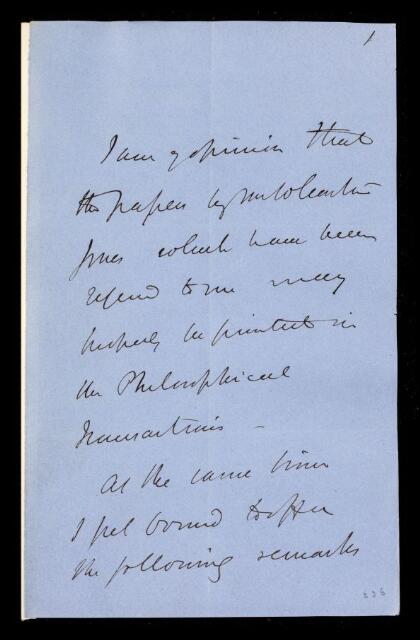 1
I am of opinion that
the papers by Mr Wharton
Jones which have been
referred to me may
properly be printed in
the Philosophical
Transactions –
At the same time
I feel bound to offer
the following remarks